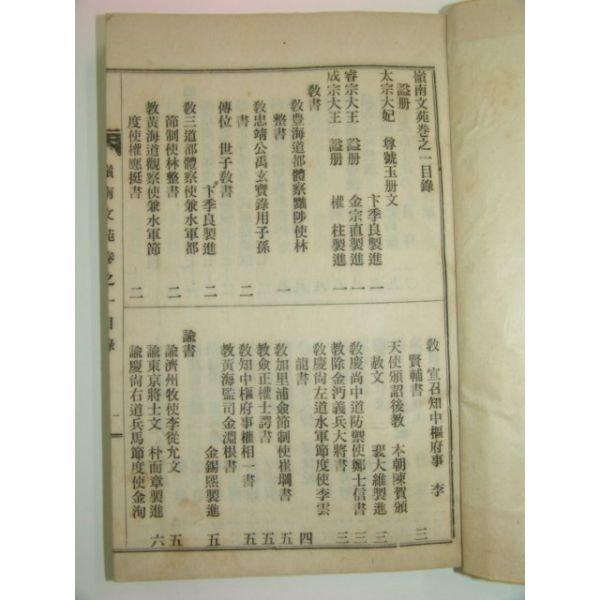 嶺南文苑卷之一目錄
謚册
太宗大妃 尊號玉册文
卞季良製進 一
睿宗大王 謚册 金宗直製進 一
成宗大王 謚册 權 柱製進 一
敎書
敎豊海道都體察黜陟使林
整書 一
敎忠靖公禹玄寶錄用子孫
書 二
傳位 世子敎書 卞季良製進 二
敎三道都體察使兼水軍都
節制使林整書 二
敎黃海道觀察使兼水軍節
度使權應挺書 二
敎 宣召知中樞府事 李
賢輔書 三
天使頒詔後敎 本朝陳賀頒
赦文 裵大維製進 三
敎慶尙中道防禦使鄭士信書 三
敎除金沔義兵大將書 三
敎慶尙左道水軍節度使李雲
龍書 四
敎加里浦僉節制使崔堈書 五
敎僉正權士諤書 五
敎知中樞府事權相一書 五
敎黃海監司金濰根書
金錫熙製進 五
諭書
諭濟州牧使李從允文 五
諭東京將士文 朴而章製進 六
諭慶尙右道兵馬節度使金洵
嶺南文苑卷之一 目錄 一